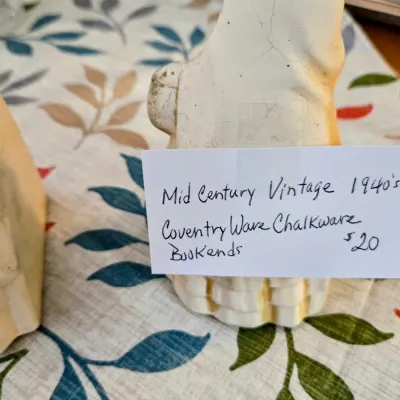 Mid Century Vintage 1940's
Coventry Ware Chalkware
Bookends $20